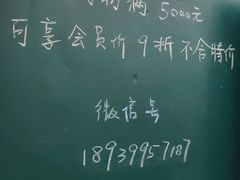 满 5000元
可享会员价9折不含特价
微信号
18939957187